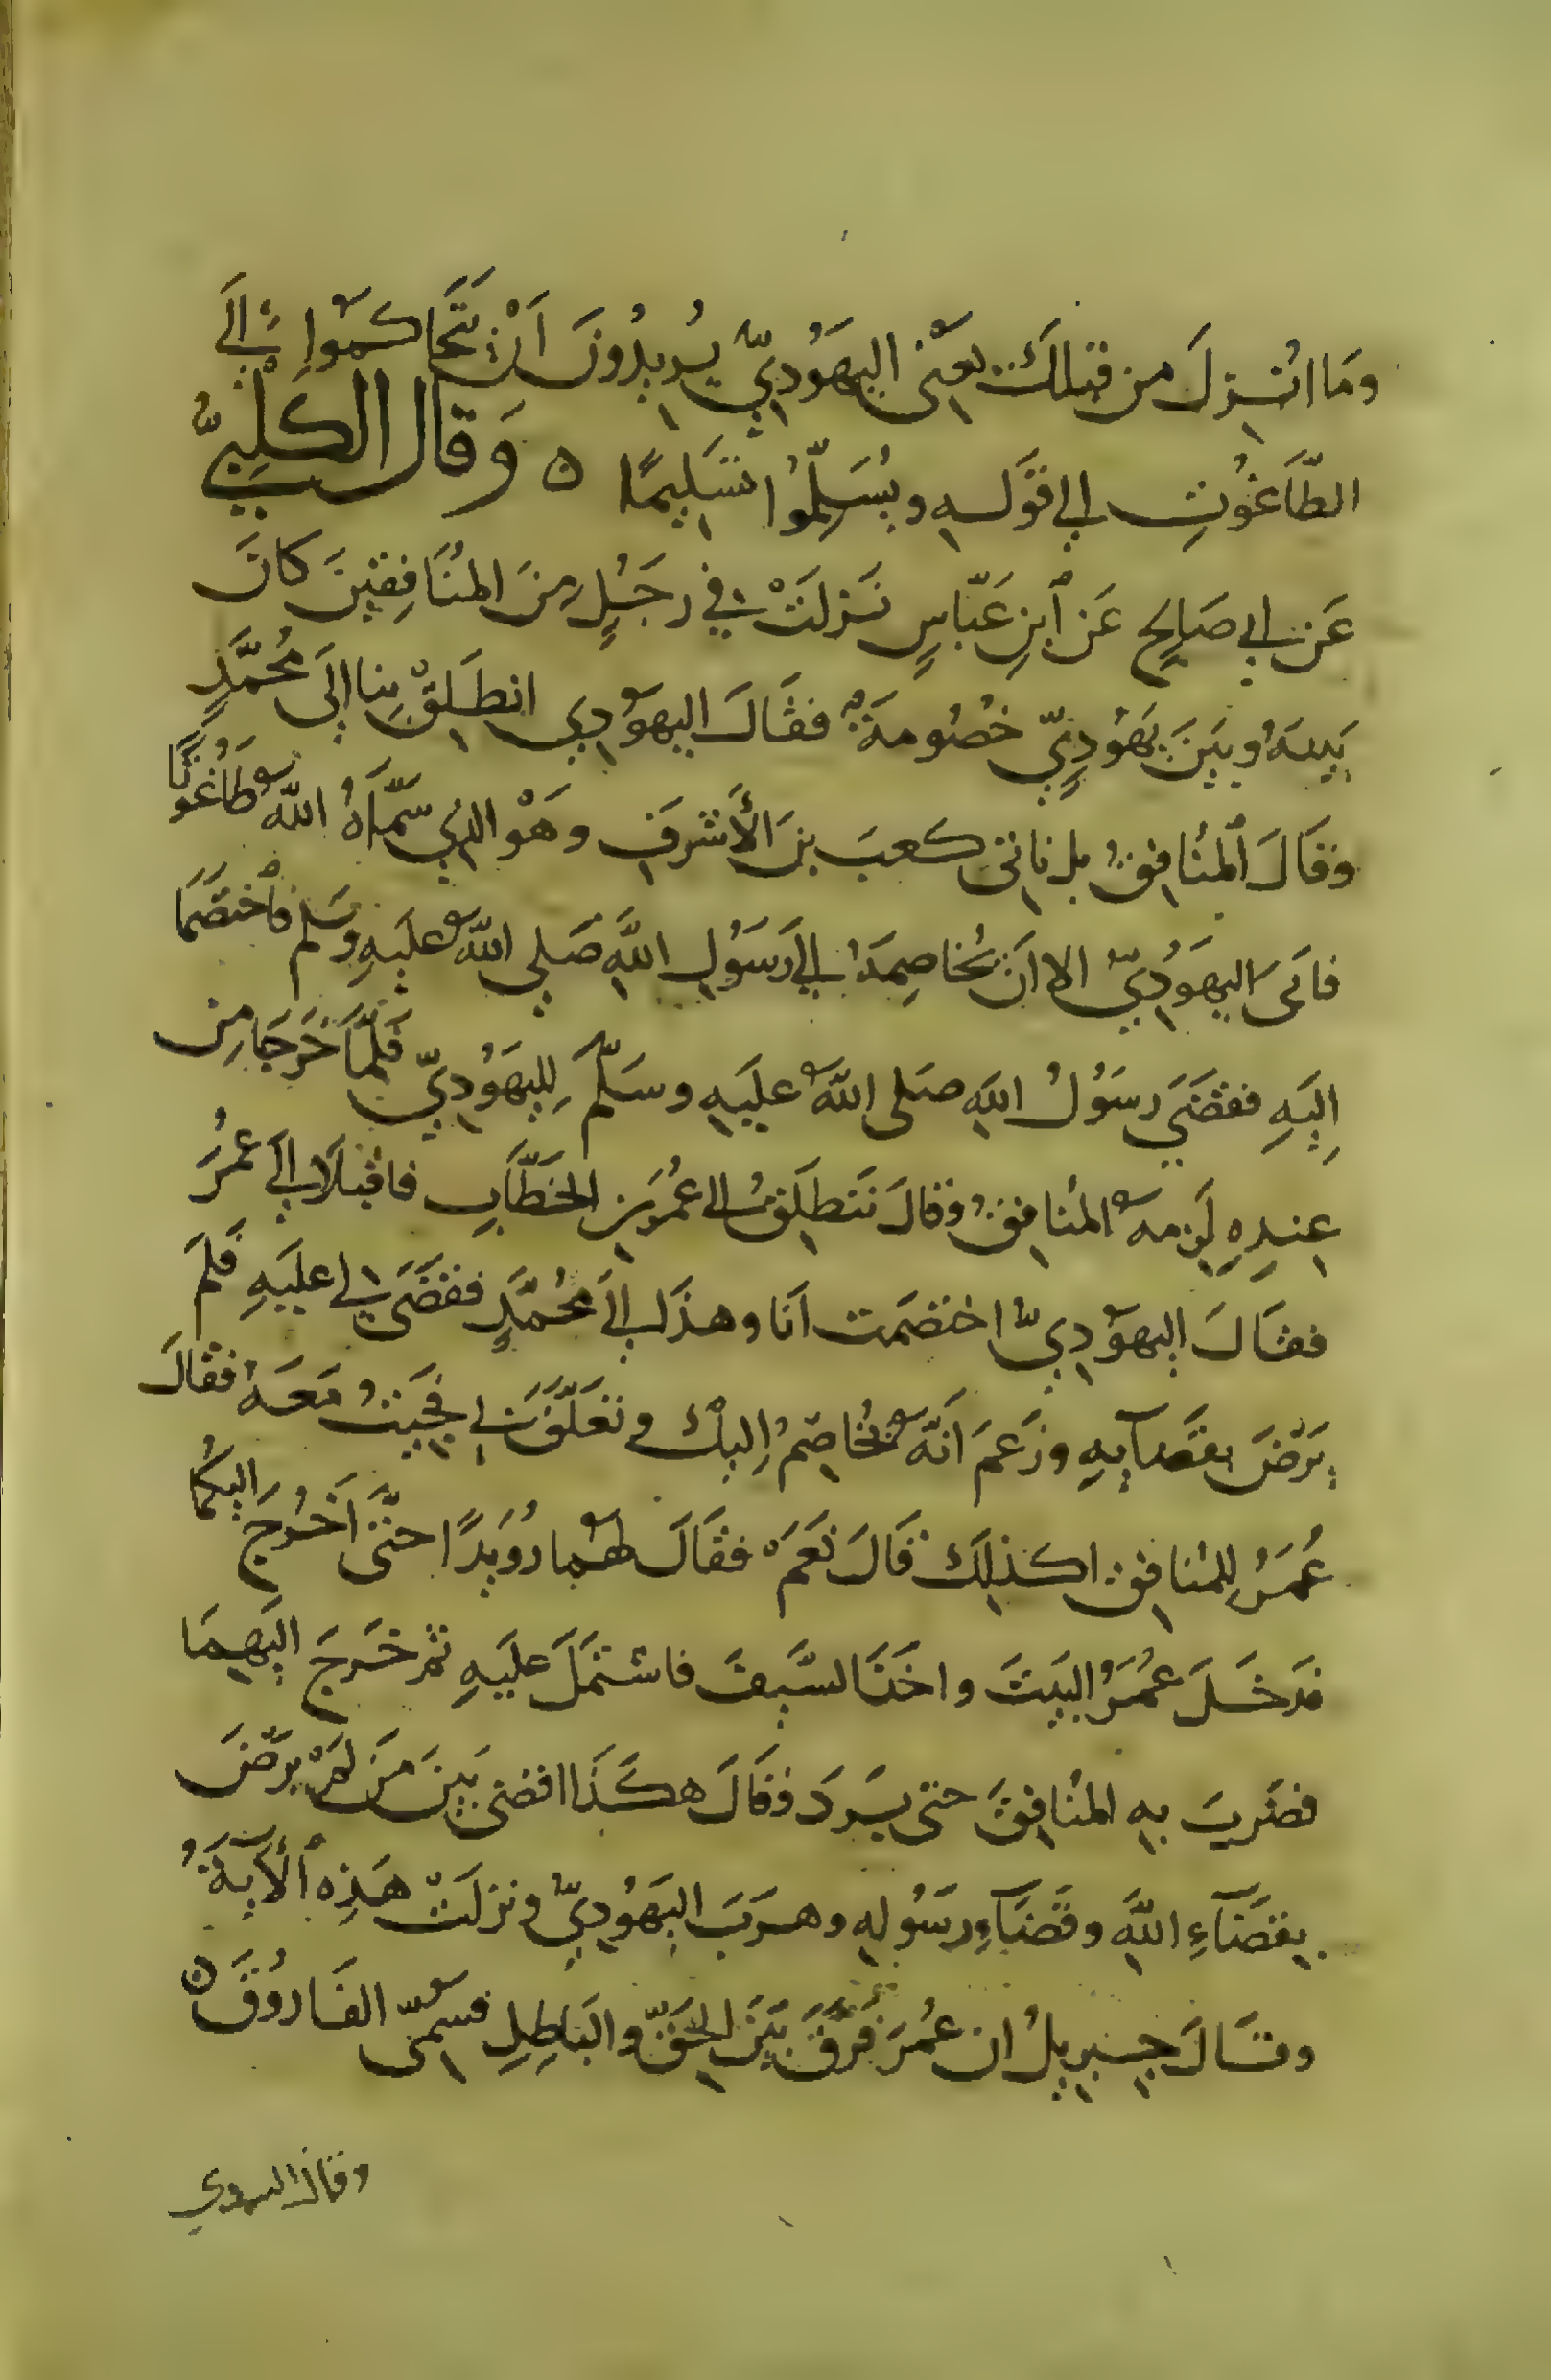 وَمَا انْزِلَ من قبلك يعني اليهَوُديّ يُريدُونَ اَنْ يَتَحَاكمَوا إلَى
الطّاغوُتِ الى قوَله ويُسَلِّموُا تسَليمًا ٥ وَقال الكلبيّ
عَن ابي صَالحٍ عَن ابنِ عَبّاسٍ نَزلَتْ في رجَلٍ منَ المنُافِقينَ كانَ
بَينهُ وبَينَ يَهوُديٍّ خصُومةٌ فقَالَ اليهوَدي انطَلِقْ بِنا إلَى مُحمَّدٍ
وقَالَ المنُافقُ بل ناتي كعبَ بنَ الأشرَفِ وهَوْ الذي سمَّاهُ اللهُ طاغوُتًا
فابَى اليهوَُديّ الا ان يُخاصِمهَُ الى رَسَوُلِ اللَّهِ صَلى اللهُ علَيهِ وسَلم فاْختصَمَا
اِليَهِ فقضَى رسَوُلُ اللهِ صَلى اللهُ عليَهِ وسَلّمَ لِليهَوُديّ فَلمَّا خَرجَا مِن
عِندِهِ لَزِمهُ المنُافقُ وقالَ ننَطلِقُ الى عُمَر بن الخَطَّابِ فاقبلاَ الَى عمُرَ
فقَالَ اليهوَديّ اختصَمت اَنا وهذا الَى مُحمَّدٍ فقضَى لي علَيهِ فَلمَ
يَرْضَ بقضَآيهِ وزَعمَ اَنّهُ يخُاصِمُ اِليكْ وتعَلّقَ بي فجَيتُ مَعهَُ فقالَ
عُمَرُ لِلمنُافق اكذلِك قَالَ نَعَمْ فقَالَ لهمُا رُوَيدًا حتَّى اَخُرجَ اليكمُا
فدَخَلَ عمُرَُ البيَتَ واخَذَ السَّيفَ فاشتمَلَ علَيهِ ثم خَرجَ اليَهِمَا
فضَربَ بهِ المنُافِقَ حتى بَرَدَ وقَالَ هكَذَا اقضى بَينَ مَن لَمْ يرَضَ
بِقضَآءِ اللَّهِ وقضَآءِ رسَوُلِهِ وهرَبَ اليَهوُديّ ونزلَتْ هَذِهِ الآيةَُ
وقَالَ جبريلُ ان عمُرَ فَرَّقَ بيَنَ الحقّ والبَاطِلِ فسمُّىَ الفَاروُقَ ٥
وقال السدي